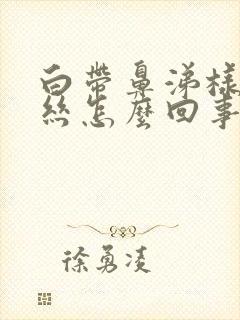 白帶鼻涕樣
絲怎麼回事
徐勇凌